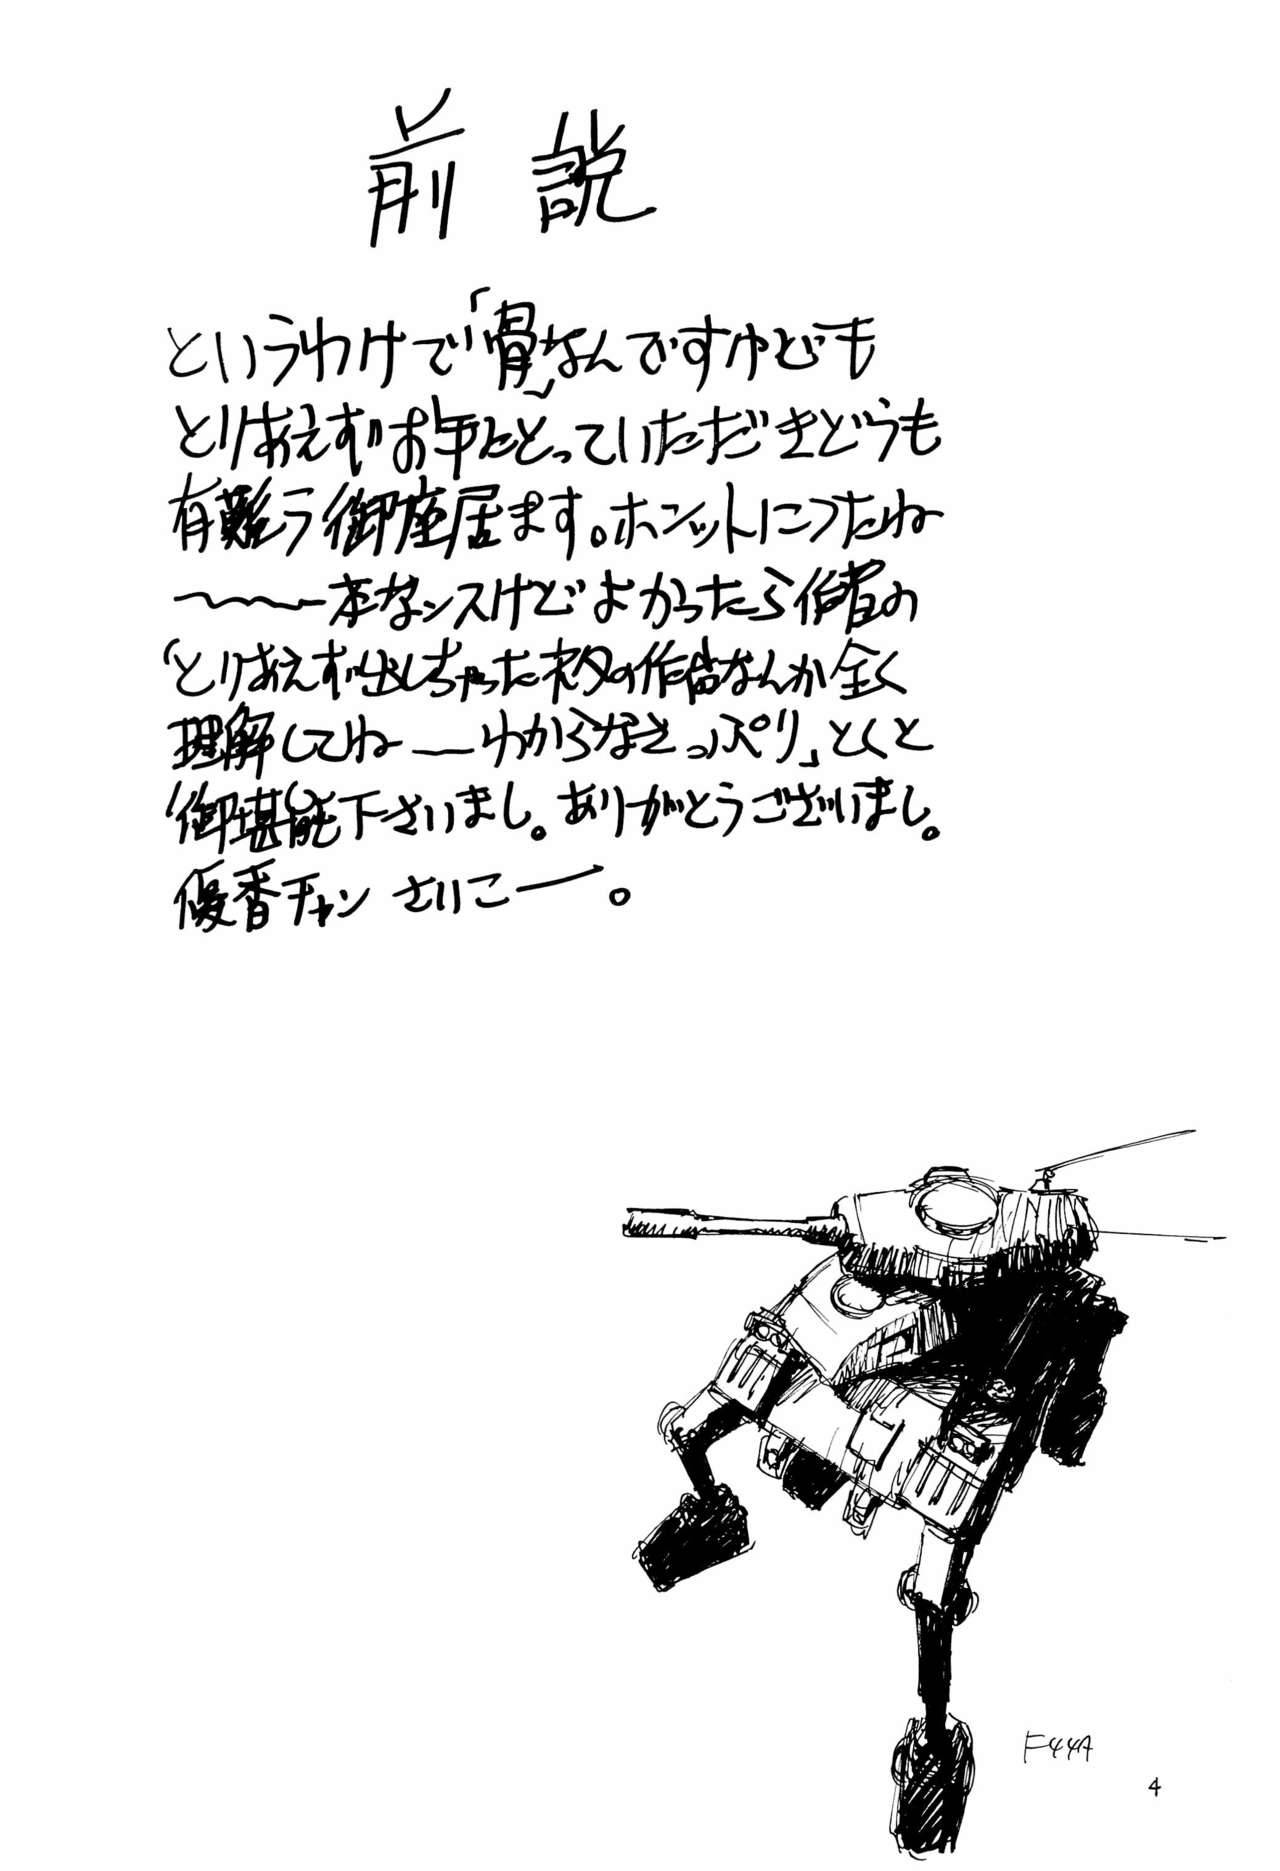 前説
というわけで「骨」なんですけども
とりあえずお手にとっていただきどうも
有難う御座居ます。ホンットにつたね
〜〜〜本なンスけどよかったら作者の
「とりあえず出しちゃったネタの作品なんか全く
理解してね〜わからなさっぷり」とくと
御堪能下さいまし。ありがとうございまし。
優香チャン さいこー。
F44A
4